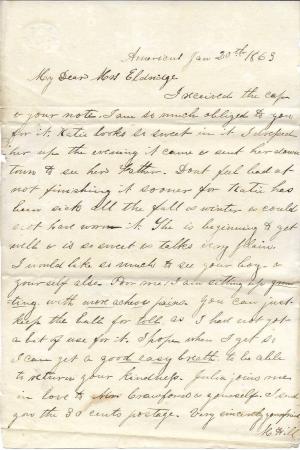 Americus Jan 20th 1863
My Dear Mrs Eldridge
I received the cap
& your note. I am so much obliged to you
for it. Katie looks so sweet in it. I dressed
her up the evening it came & sent her down
town to see her Father. Dont feel bad at
not finishing it sooner for Katie has
been sick all the fall & winter & could
not have worn it. She is beginning to get
well & is so sweet & talks very plain.
I would like so much to see your boy &
yourself also. Poor me I am sitting up
with more aches & pains. You can just
keep the ball for  as I had not got
a bit of use for it. I hope when I get so
I can get a good easy breath to be able
to return your kindness. Julia joins me
in love to Mrs Crawford & yourself. I send
you the 30 cents postage. Very sincerely your friend
M. Hill